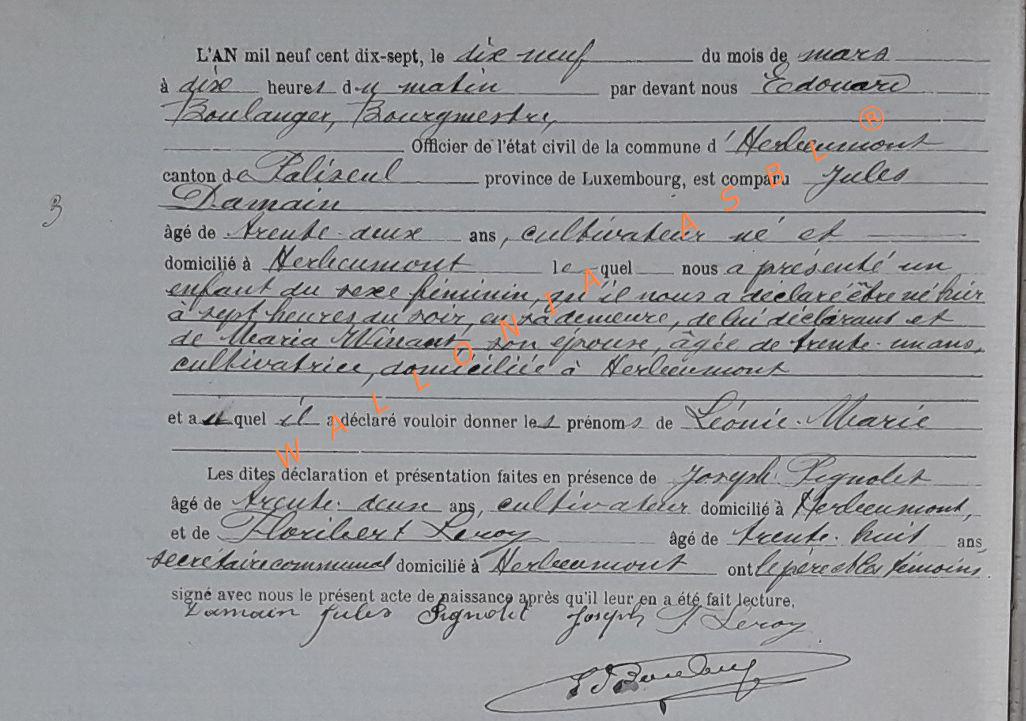 L'AN mil neuf cent dix-sept, le dix neuf du mois de mars
à dix heures du matin par devant nous Edouard
Boulanger, Bourgmestre,
Officier de l'état civil de la commune d'Herbeumont
canton de Paliseul province de Luxembourg, est comparu Jules
Damain
3
âgé de trente-deux ans, cultivateur né et
domicilié à Herbeumont lequel nous a présenté un
enfant du sexe féminin, qu'il nous a déclaré être né hier
à sept heures du soir, en sa demeure, de lui déclarant et
de Maria son épouse, âgée de trente-un ans,
cultivatrice, domiciliée à Herbeumont
et auquel il a déclaré vouloir donner les prénoms de Léonie-Marie
Les dites déclaration et présentation faites en présence de Joseph Pignolet
âgé de trente-deux ans, cultivateur domicilié à Herbeumont,
et de Floribert Leroy âgé de trente-huit ans,
secrétaire communal domicilié à Herbeumont ont le père et les témoins
signé avec nous le présent acte de naissance après qu'il leur en a été fait lecture.
Damain Jules Pignolet Joseph F Leroy
Ed Boulang
WALLONFA ASBL ®